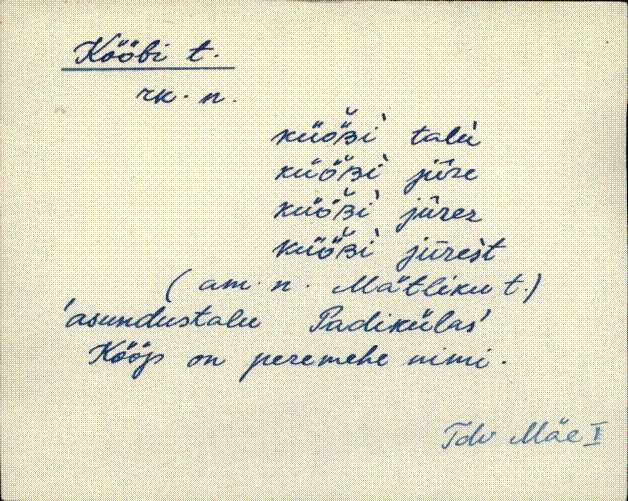 Kööbi t.
rk. n.
küö̆ʙì talù
küö̆ʙì jū̀re
küö̆ʙì jū̀rez
küö̆ʙì jū̀rest
(am. n. Mätliku t.)
'asundustalu Padikülas'
Kööp on peremehe nimi.
Tdv Mäe I